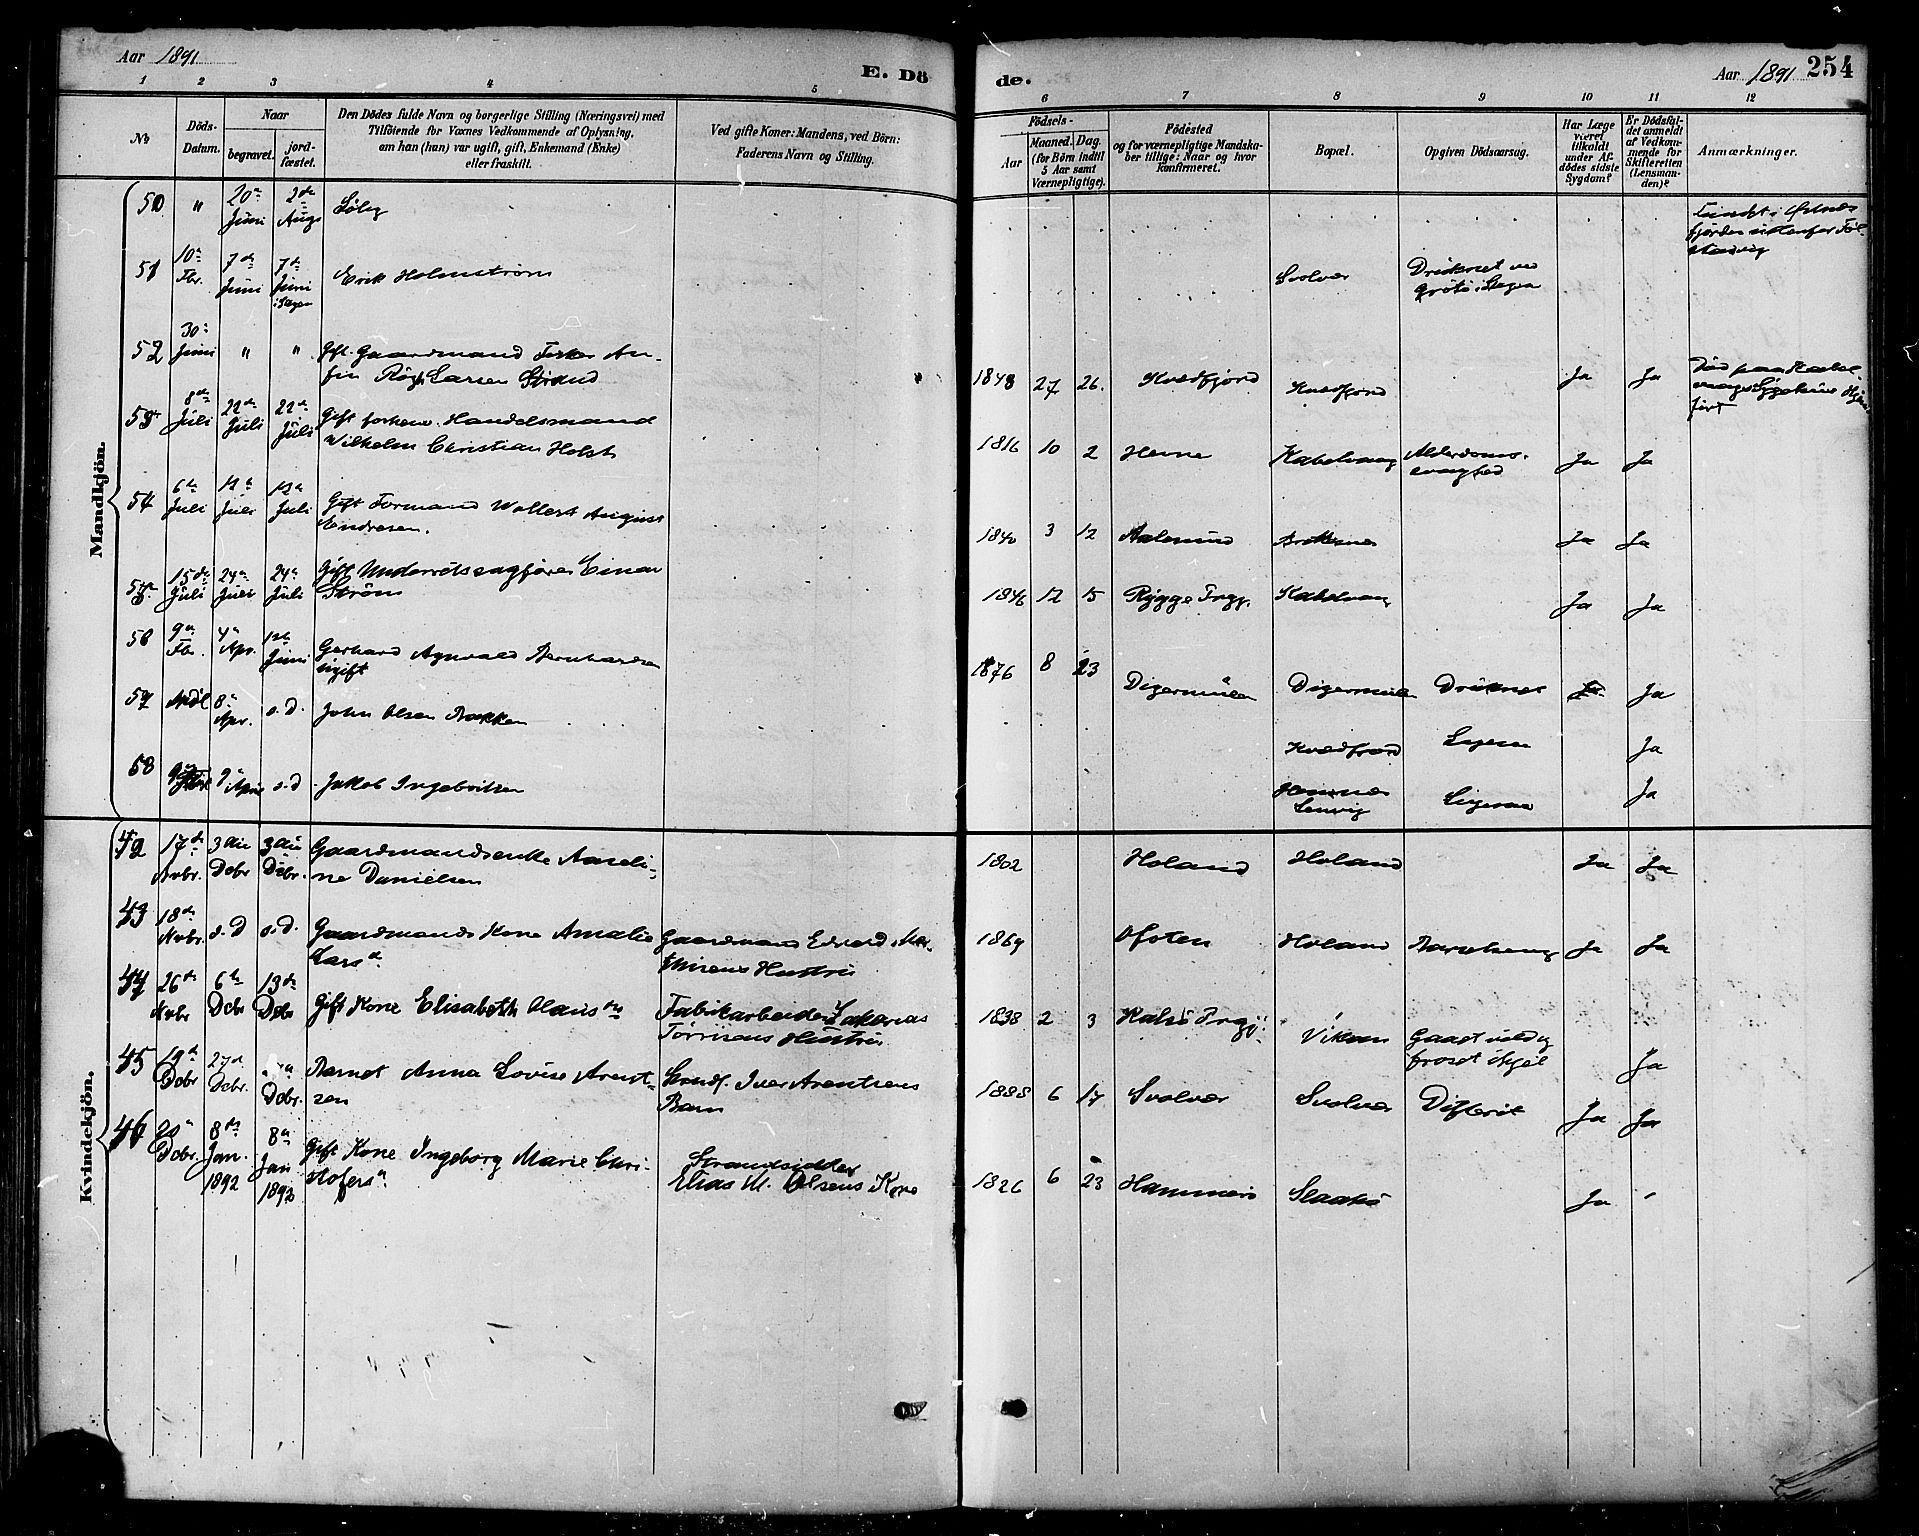 Aar 1891
E. Dö
de.
Aar 1891 254
1 2 3 4 5 6 7 8 9 10 11 12
No.
Döds-
Datum.
Naar
begravet.
jord-
fæstet.
Den Dödes fulde Navn og borgerlige Stilling (Næringsvei) med
Tilföiende for Voxnes Vedkommende af Oplysning,
om han (hun) var ugift, gift, Enkemand (Enke)
eller fraskilt.
Ved gifte Koner: Mandens, ved Börn:
Faderens Navn og Stilling.
Födsels-
Aar
Maaned. Dag.
(for Börn indtil
5 Aar samt
Værnepligtige).
Födested
og for værnepligtige Mandska-
ber tillige: Naar og hvor
konfirmeret.
Bopæl.
Opgiven Dödsaarsag.
Har Læge
været
tilkaldt
under Af-
dödes sidste
Sygdom?
Er Dödsfal-
det anmeldt
af Vedkom-
mende for
Skifteretten
(Lensman-
den)?
Anmærkninger.
Mandkjön.
50 " 20de Juni 2de Aug
51 10de Fbr. 7de Juni 7de Juni i Stegen Erik Holmström Svolvær Druknet ved
Grötö i Stegen
52 30te Juni " " Gift Gaardmand Fisker An-
fin Larsen Strand 1848 27 26. Kvædfjord Kvædfjord Ja Ja
53 8de Juli 22de Juli 22de Juli Gift forhenv. Handelsmand
Wilhelm Christian Holst 1816 10 2 Hevne Kabelvaag Alderdoms-
svaghed Ja Ja
54 6te Juli Juli Juli Gift Formand Wollert August
Endresen. 1840 3 12 Aalesund Ja Ja
55 15de Juli 24de Juli 24de Juli Gift Underretssagfører Einar
Ström 1846 12 15 Rygge Prgj. Kabelvaag Ja Ja
56 9de Fbr. 4de Apr. Juni Gerhard Agnvald Bernhardsen
ugift 1876 8 23 Digermulen Digermulen Druknet Ja
57 8de Apr. s.D. John Olsen Bakken Kvædfjord Ligesaa Ja
58 9de April s.D. Jakob Ingebrigtsen Lenvig Ligesaa Ja
Kvindekjön.
42 17de Nvbr. 3die Dcbr 3die Dcbr. Gaardmandsenke Amali-
ne Danielsen 1802 Holand Holand Ja Ja
43 18de Nvbr. s.D s.D. Gaardmands Kone Amalie
Larsdr Gaardmand Edvard
Hustru 1869 Ofoten Holand Barselseng Ja Ja
44 26de Nvbr 6te Dcbr 13de Dcbr Gift Kone Elisabeth Klausdtr Fabrikarbeider Zakarias
Tørrisens Hustru 1838 2 3 Prgj. Viken Ja
45 19de Dcbr 27de Dcbr. Dcbr. Barnet Anna Lovise Arent-
sen Strandf. Iver Arentsens
Barn 1888 6 17 Svolvær Svolvær Difterit Ja Ja
46 20de Dcbr. 8de Jan. 1892 8de Jan 1892 Gift Kone Ingeborg Marie Chri-
stofersdr Strandsidder
Elias M. Olsens Kone 1826 6 23 Hammerö Ja